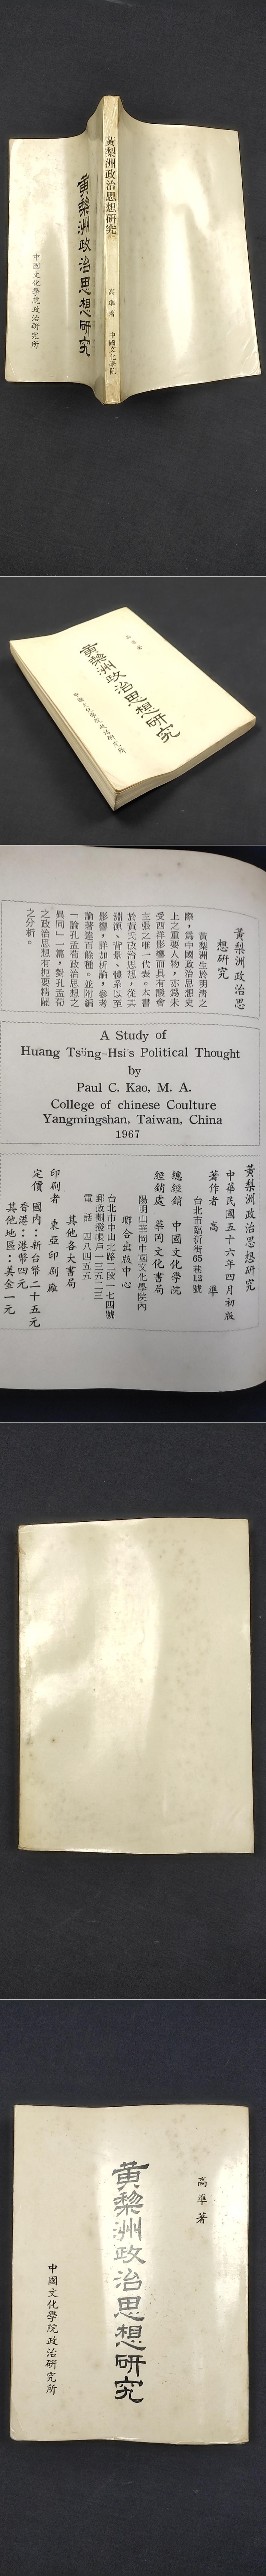 黃梨洲政治思想研究
高準著
中國文化學院
黃梨洲政治思想研究
中國文化學院政治研究所
高準著
黃梨洲政治思想研究
中國文化學院政治研究所
黃梨洲政治思
想研究
黃梨洲生於明清之
際，爲中國政治思想史
上之重要人物，亦爲未
受西洋影響而具有議會
主張之唯一代表。本書
於黃氏政治思想，從其
淵源、背景、體系以至
影響，詳加析論，參考
論著達百餘種。並附編
「論孔孟荀政治思想之
異同」一篇，對孔孟荀
之政治思想有扼要精闢
之分析。
A Study of
Huang Tsüng-Hsi's Political Thought
by
Paul C. Kao, M. A.
College of chinese Coulture
Yangmingshan, Taiwan, China
1967
黃梨洲政治思想研究
中華民國五十六年四月初版
著作者 高準
台北市臨沂街65巷12號
總經銷 中國文化學院
經銷處 華岡文化書局
陽明山華岡中國文化學院內
聯合出版中心
台北市中山北路二段一七四號
郵政劃撥帳戶一三五二三
電話 四八四五五
其他各大書局
印刷者 東亞印刷廠
定價 國內：新台幣二十五元
香港：港幣四元
其他地區：美金一元
高準著
黃梨洲政治思想研究
中國文化學院政治研究所